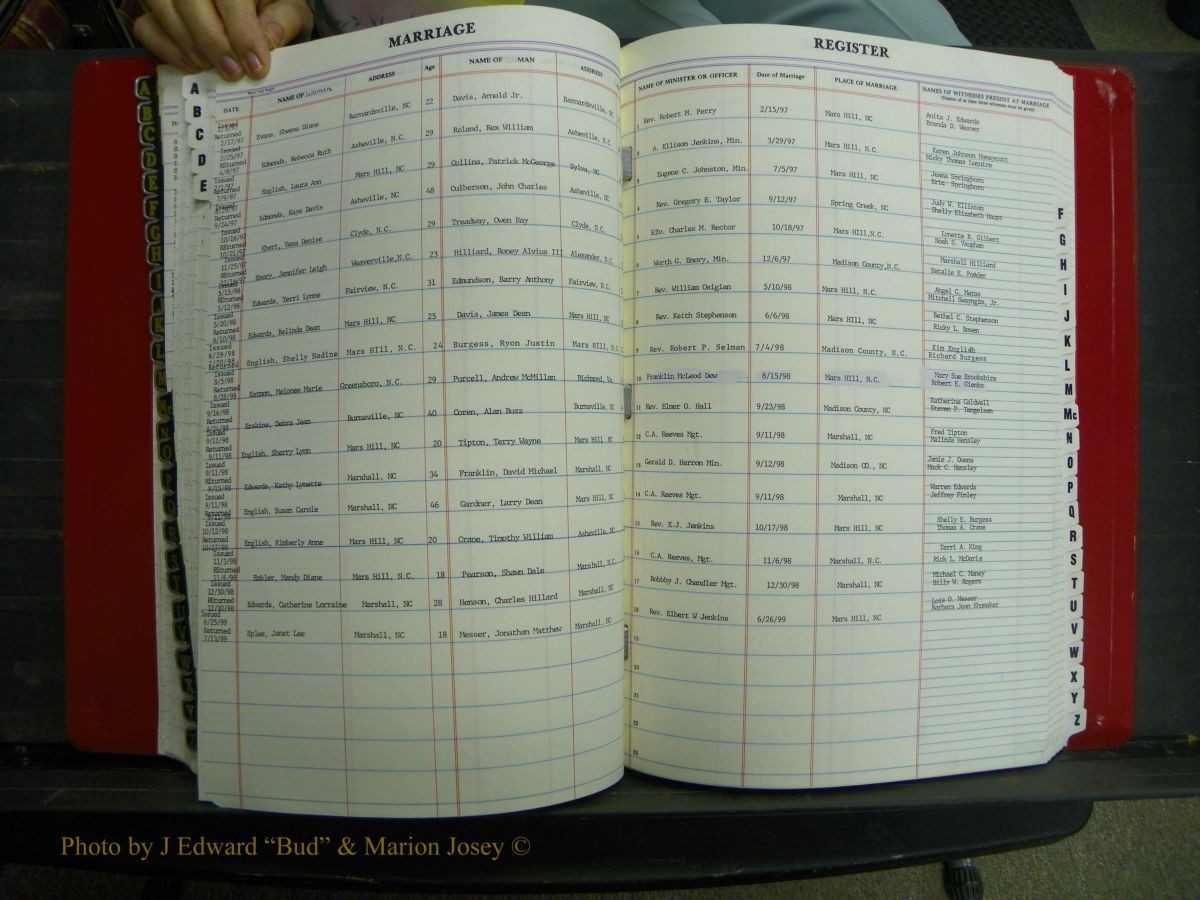 MARRIAGE
DATE NAME OF Woman ADDRESS Age NAME OF MAN ADDRESS
Evans, Sheena Diane Barnardsville, NC 22 Davis, Arnold Jr. Barnardsville, NC
Edmonds, Rebecca Ruth Asheville, N.C. 29 Roland, Rex William Asheville, N.C.
English, Laura Ann Mars Hill, NC 29 Collins, Patrick McGeorge Sylva, NC
Edmonds, Kaye Davis Asheville, NC 48 Culberson, John Charles Asheville, NC
Ebert, Vena Denise Clyde, N.C. 29 Treadway, Owen Ray Clyde, N.C.
Emory, Jennifer Leigh Weaverville,N.C. 23 Hilliard, Roney Alvius III Alexander, N.C.
Edwards, Terri Lynne Fairview, N.C. 31 Edmundson, Barry Anthony Fairview, N.C.
Edwards, Belinda Dean Mars Hill, NC 25 Davis, James Dean Mars Hill, NC
English, Shelly Nadine Mars HIll, N.C. 24 Burgess, Ryon Justin Mars HIll, N.C
Eatmon, Melonee Marie Greensboro, N.C. 29 Purcell, Andrew McMillan Richmond, Va
Erskine, Debra Jean Burnsville, NC 40 Coren, Alan Buzz Burnsville, NC
English, Sherry Lynn Mars Hill, NC 20 Tipton, Terry Wayne Mars Hill, NC
Edwards, Kathy Lynette Marshall, NC 34 Franklin, David Michael Marshall, NC
English, Susan Carole Marshall, NC 46 Gardner, Larry Dean Mars Hill, NC
English, Kimberly Anne Mars Hill, NC 20 Crane, Timothy William Asheville, NC
Embler, Mandy Diane Mars Hill, N.C. 18 Pearson, Shawn Dale Marshall, N.C.
Edwards, Catherine Lorraine Marshall, NC 28 Henson, Charles Hillard Marshall, NC
Eplee, Janet Lee Marshall, NC 18 Messer, Jonathan Matthew Marshall, NC
REGISTER
NAME OF MINISTER OR OFFICER Date of Marriage PLACE OF MARRIAGE NAMES OF WITNESSES PRESENT AT MARRIAGE
(Names of at least three witnesses must be given)
1 Rev. Robert H. Perry 2/15/97 Mars Hill, NC Anita J. Edwards
Brenda D. Weaver
2 A. Ellison Jenkins, Min. 3/29/97 Mars Hill, N.C. Karen Johnson Honeycutt
Nicky Thomas
3 Eugene C. Johnston, Min. 7/5/97 Mars Hill, NC Jeana Springborn
Eric Springborn
4 Rev. Gregory E. Taylor 9/12/97 Spring Creek, NC Judy W. Elliston
Shelly Elizabeth Haupt
5 REv. Charles M. Rector 10/18/97 Mars Hill,N.C. Lynette B. Gilbert
Noah S. Vaughan
6 Worth G. Emory, Min. 12/6/97 Madison County,N.C. Marshall Hilliard
Natalie E. Ponder
7 Rev. William Osigian 5/10/98 Mars Hill, N.C. Angel C. Matos
Mitchell Swayngim, Jr.
8 Rev. Keith Stephenson 6/6/98 Mars Hill, NC Bethel C. Stephenson
Ricky L. Bowen
9 Rev. Robert P. Selman 7/4/98 Madison County, N.C. Kim English
Richard Burgess
10 Franklin McLeod Dew 8/15/98 Mars HIll, N.C. Mary Sue Brookshire
Robert E.
11 Rev. Elmer O. Hall 9/23/98 Madison County, NC Katherine Caldwell
Steven P. Tengelsen
12 C.A. Reeves Mgt. 9/11/98 Marshall, NC Fred Tipton
Malinda Hensley
13 Gerald D. Herron Min. 9/12/98 Madison CO., NC Janie J. Owens
Mack C. Hensley
14 C.A. Reeves Mgt. 9/11/98 Marshall, NC Warren Edwards
Jeffrey Finley
15 Rev. E.J. Jenkins 10/17/98 Mars Hill, NC Shelly E. Burgess
Thomas A. Crane
16 C.A. Reeves, Mgt. 11/6/98 Marshall, N.C. Terri A. King
Rick L. McDaris
17 Bobbby J. Chandler Mgt. 12/30/98 Marshall, NC Michael C. Maney
Billy W. Rogers
18 Rev. Elbert W Jenkins 6/26/99 Mars Hill, NC Lois O. Messer
Barbara Jean Shumaker
19
20
21
22
23
A
B
C
D
E
F
G
H
I
J
K
L
M
Mc
N
O
P
Q
R
S
T
U
V
W
X
Y
Z
Photo by J Edward “Bud” & Marion Josey ©